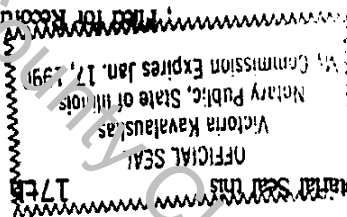 17th
tarial Seal this
OFFICIAL SEAL
Victoria Kavalauskas
Notary Public, State of Illinois
My Commission Expires Jan. 17, 1990
, Filed for Record
ounty C